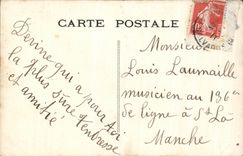 CARTE POSTALE
Devine qui a pour toi
la plus vive tendresse
et amitié
Monsieur
Louis Laumaille
musicien au 136e
de ligne à St Lô
Manche